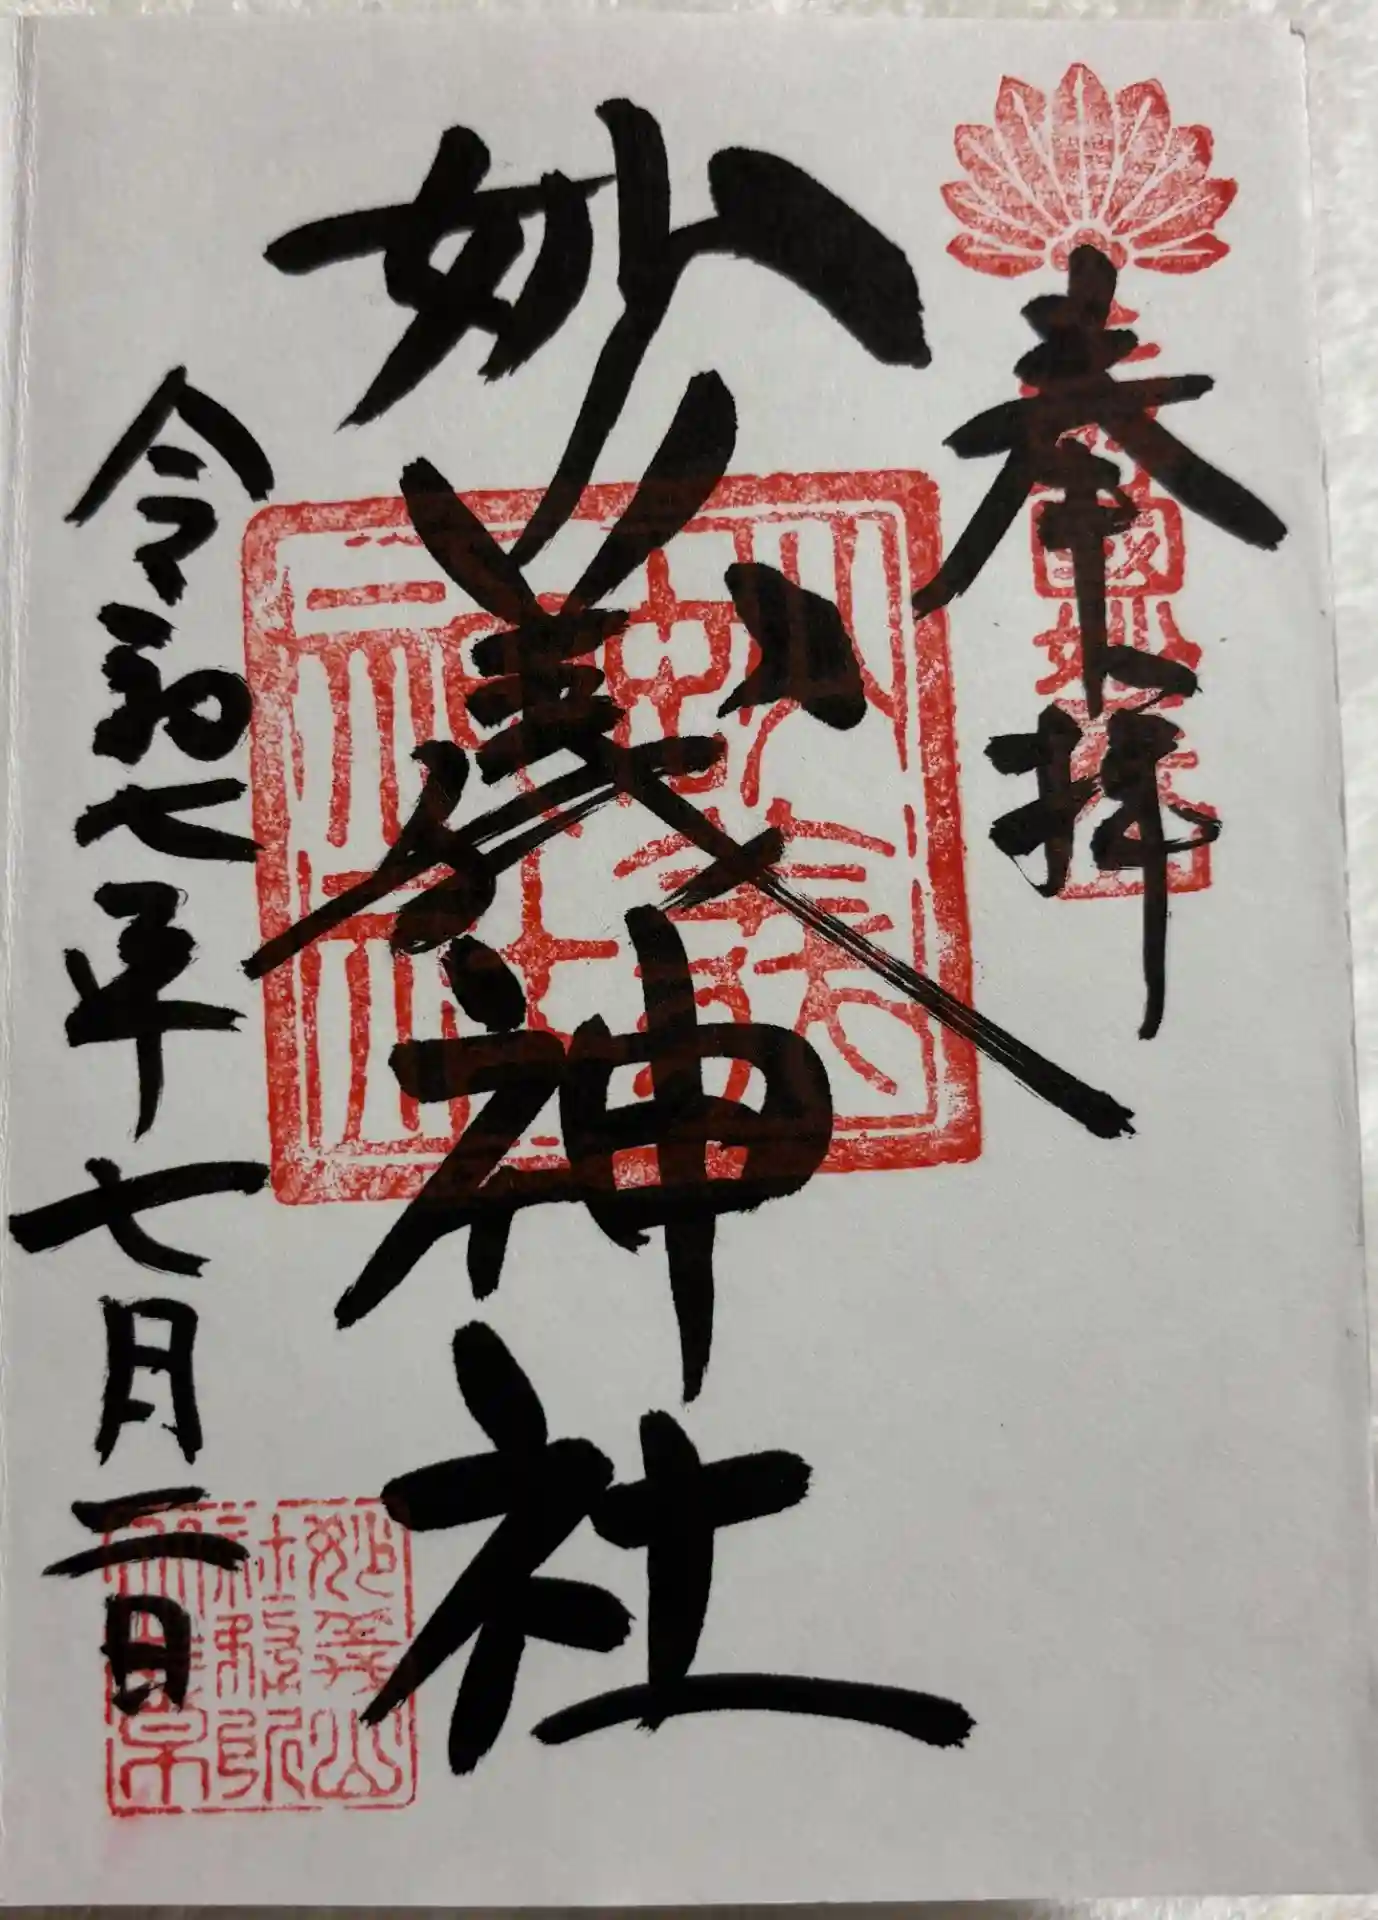 奉拝
妙義神社
令和七年七月二日
妙義神社
妙義山
社務所